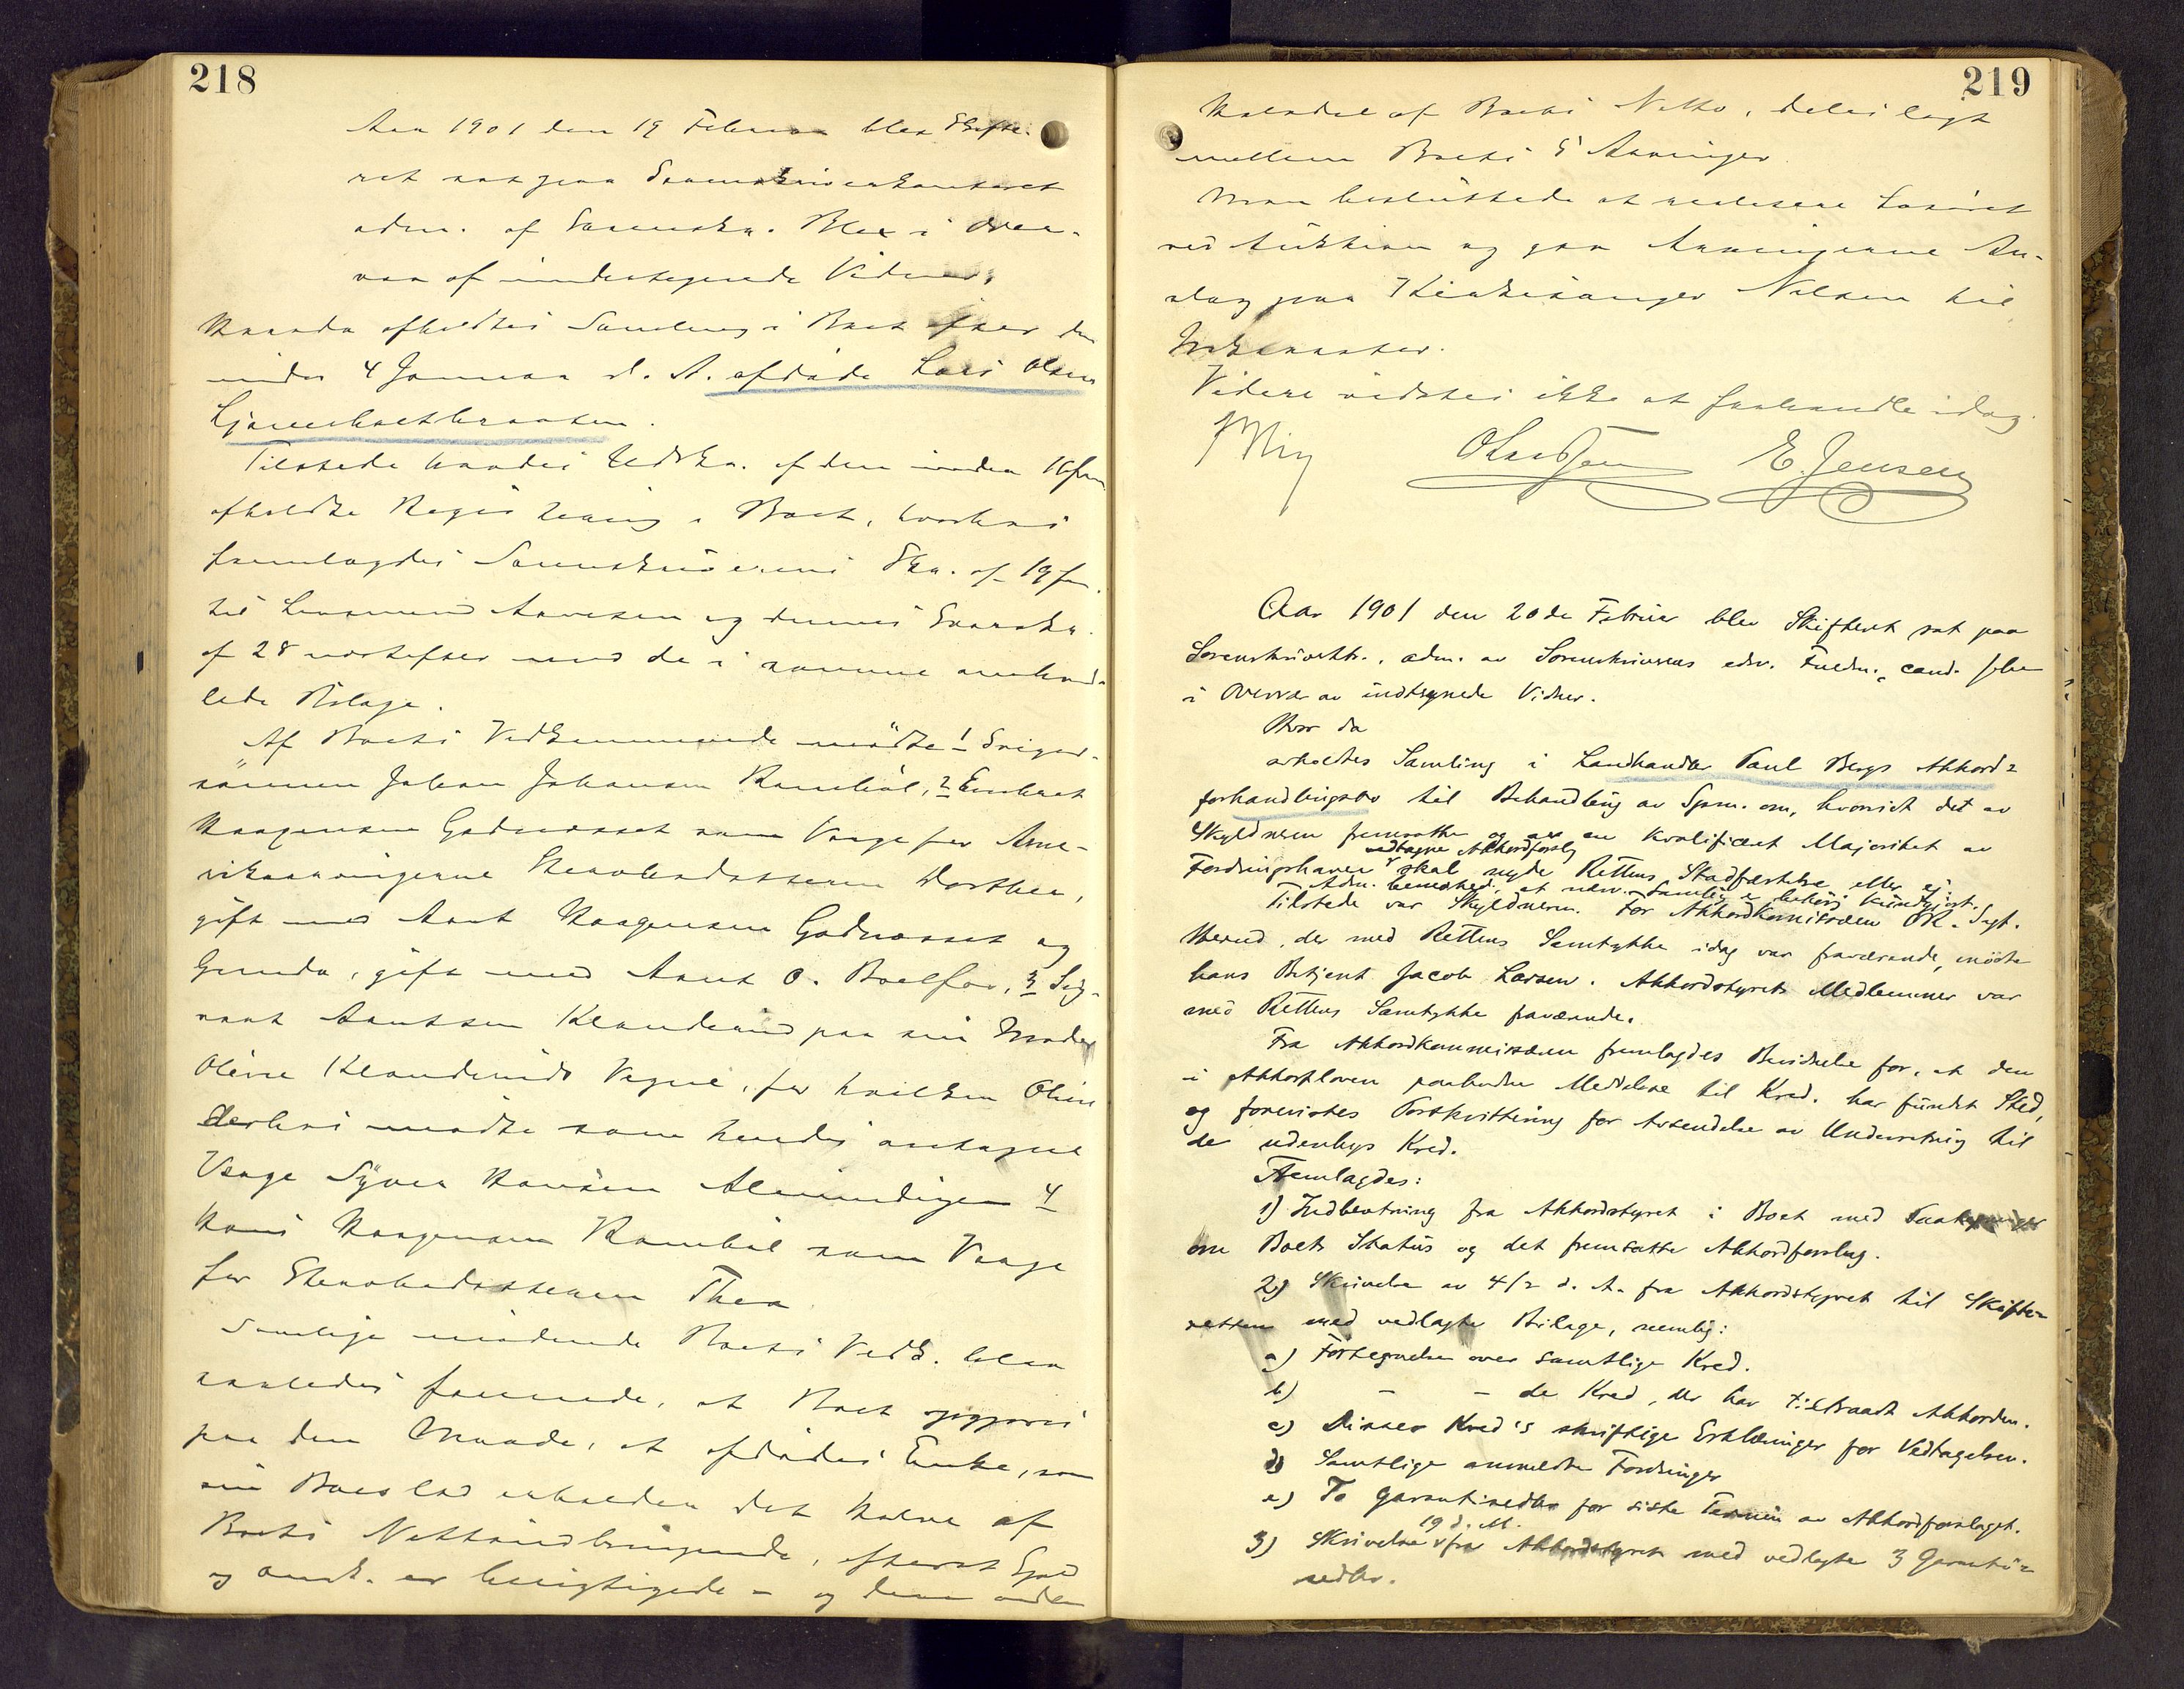 218
Aar 1901 den 19 Februar blev Skifte-
ret sat paa Sorenskriverkontoret
adm. af Sorenskr. Blex i Over-
vær af undertegnede Vidner,
Hvorda afholdtes Samling i Boet efter den
under 4 Januar d. A. afdøde Lars Olsen
Tilstede havdes Udskr. af den under
afholdte Registrering i Boet, hvorhos
fremlagdes Sorenskriverens Skr. af 19 f.m.
til Lensmand Aavesen og dennes Svarskr.
af 28 næstefter med de i samme omhand-
lede Bilage.
Af Boets Vedkommende mødte 1 Sviger-
sønnen Johan Johansen Rambøl, 2 Enebret
Haagensen Godnæsset som Værge for Ame-
rikaarvingerne Stervbodatteren Dorthea,
gift med Anut Haagensen Godnæsset og
Gunda, gift med Anut O. Boelfos, 3 Sig-
vart Anutsen Klanderud paa sin Moder
Oline Klanderuds Vegne, for hvilken Oline
derhos mødte som hendes antagne
Værge Syver Hansen Almindingen 4
Hans Haagensen Rambøl som Værge
for Stervbodatteren Thea
Samtlige mødende Boets Vedk. blev
saaledes forenede, at Boet opgjøres
paa den Maade, at afdødes Enke, som
sin Boeslod erholder det halve af
Boets Nettoindbringende, efterat Gjæld
og Omk. er berigtigede – og den anden
219
Halvdel af Boets Netto, deles ligt
mellem Boets 5 Arvinger.
Man besluttede at realisere Løsøret
ved Auktion og gav Arvingerne An-
slag paa Kirkesanger Nilsen til
Inkassator.
Videre vidstes ikke at forhandle idag.
E. Jensen
Aar 1901 den 20de Februar blev Skifteret sat paa
Sorenskriverktr., adm. av Sorenskriverens edsv. Fuldm., cand.
i Overvær av undtegnede Vidner.
Hvor da
avholdtes Samling i Landhandler Paul Bergs Akkord-
forhandlingsbo til Behandling av Spm. om, hvorvidt det av
Skyldneren fremsatte og av en kvalificert Majoritet av
vedtagne Akkordforslag
Fordringshavere skal nyde Rettens Stadfæstelse eller ej.
Adm. bemerked, at nærv. Samling er behørig kundgjort.
Tilstede var Skyldneren. For Akkordkommissæren OR. Sagf.
Herud, der med Rettens Samtykke idag var fraværende, mødte
hans Betjent Jacob Larsen. Akkordstyrets Medlemmer var
med Rettens Samtykke fraværende.
Fra Akkordkommissæren fremlagdes Bevidnelse for, at den
i Akkordloven paabudne Meddelelse til Kred. har fundet Sted,
og forevistes Postkvittering for Avsendelse av Underretning til
de udenbys Kred.
Fremlagdes:
1) Indberetning fra Akkordstyret i Boet med
om Boets Status og det fremsatte Akkordforslag.
2) Skrivelse av 4/2 d. A. fra Akkordstyret til Skifte-
retten med vedlagte Bilage, nemlig:
a) Fortegnelse over samtlige Kred.
b) – – de Kred, der har tiltraadt Akkorden.
c) Disses Kred's skriftlige Erklæringer for Vedtagelsen.
d) Samtlige anmeldte Fordringer
e) To Garantisedler for siste Termin av Akkordforslaget.
19 d. M.
3) Skrivelse fra Akkordstyret med vedlagte 3 Garanti-
sedler.